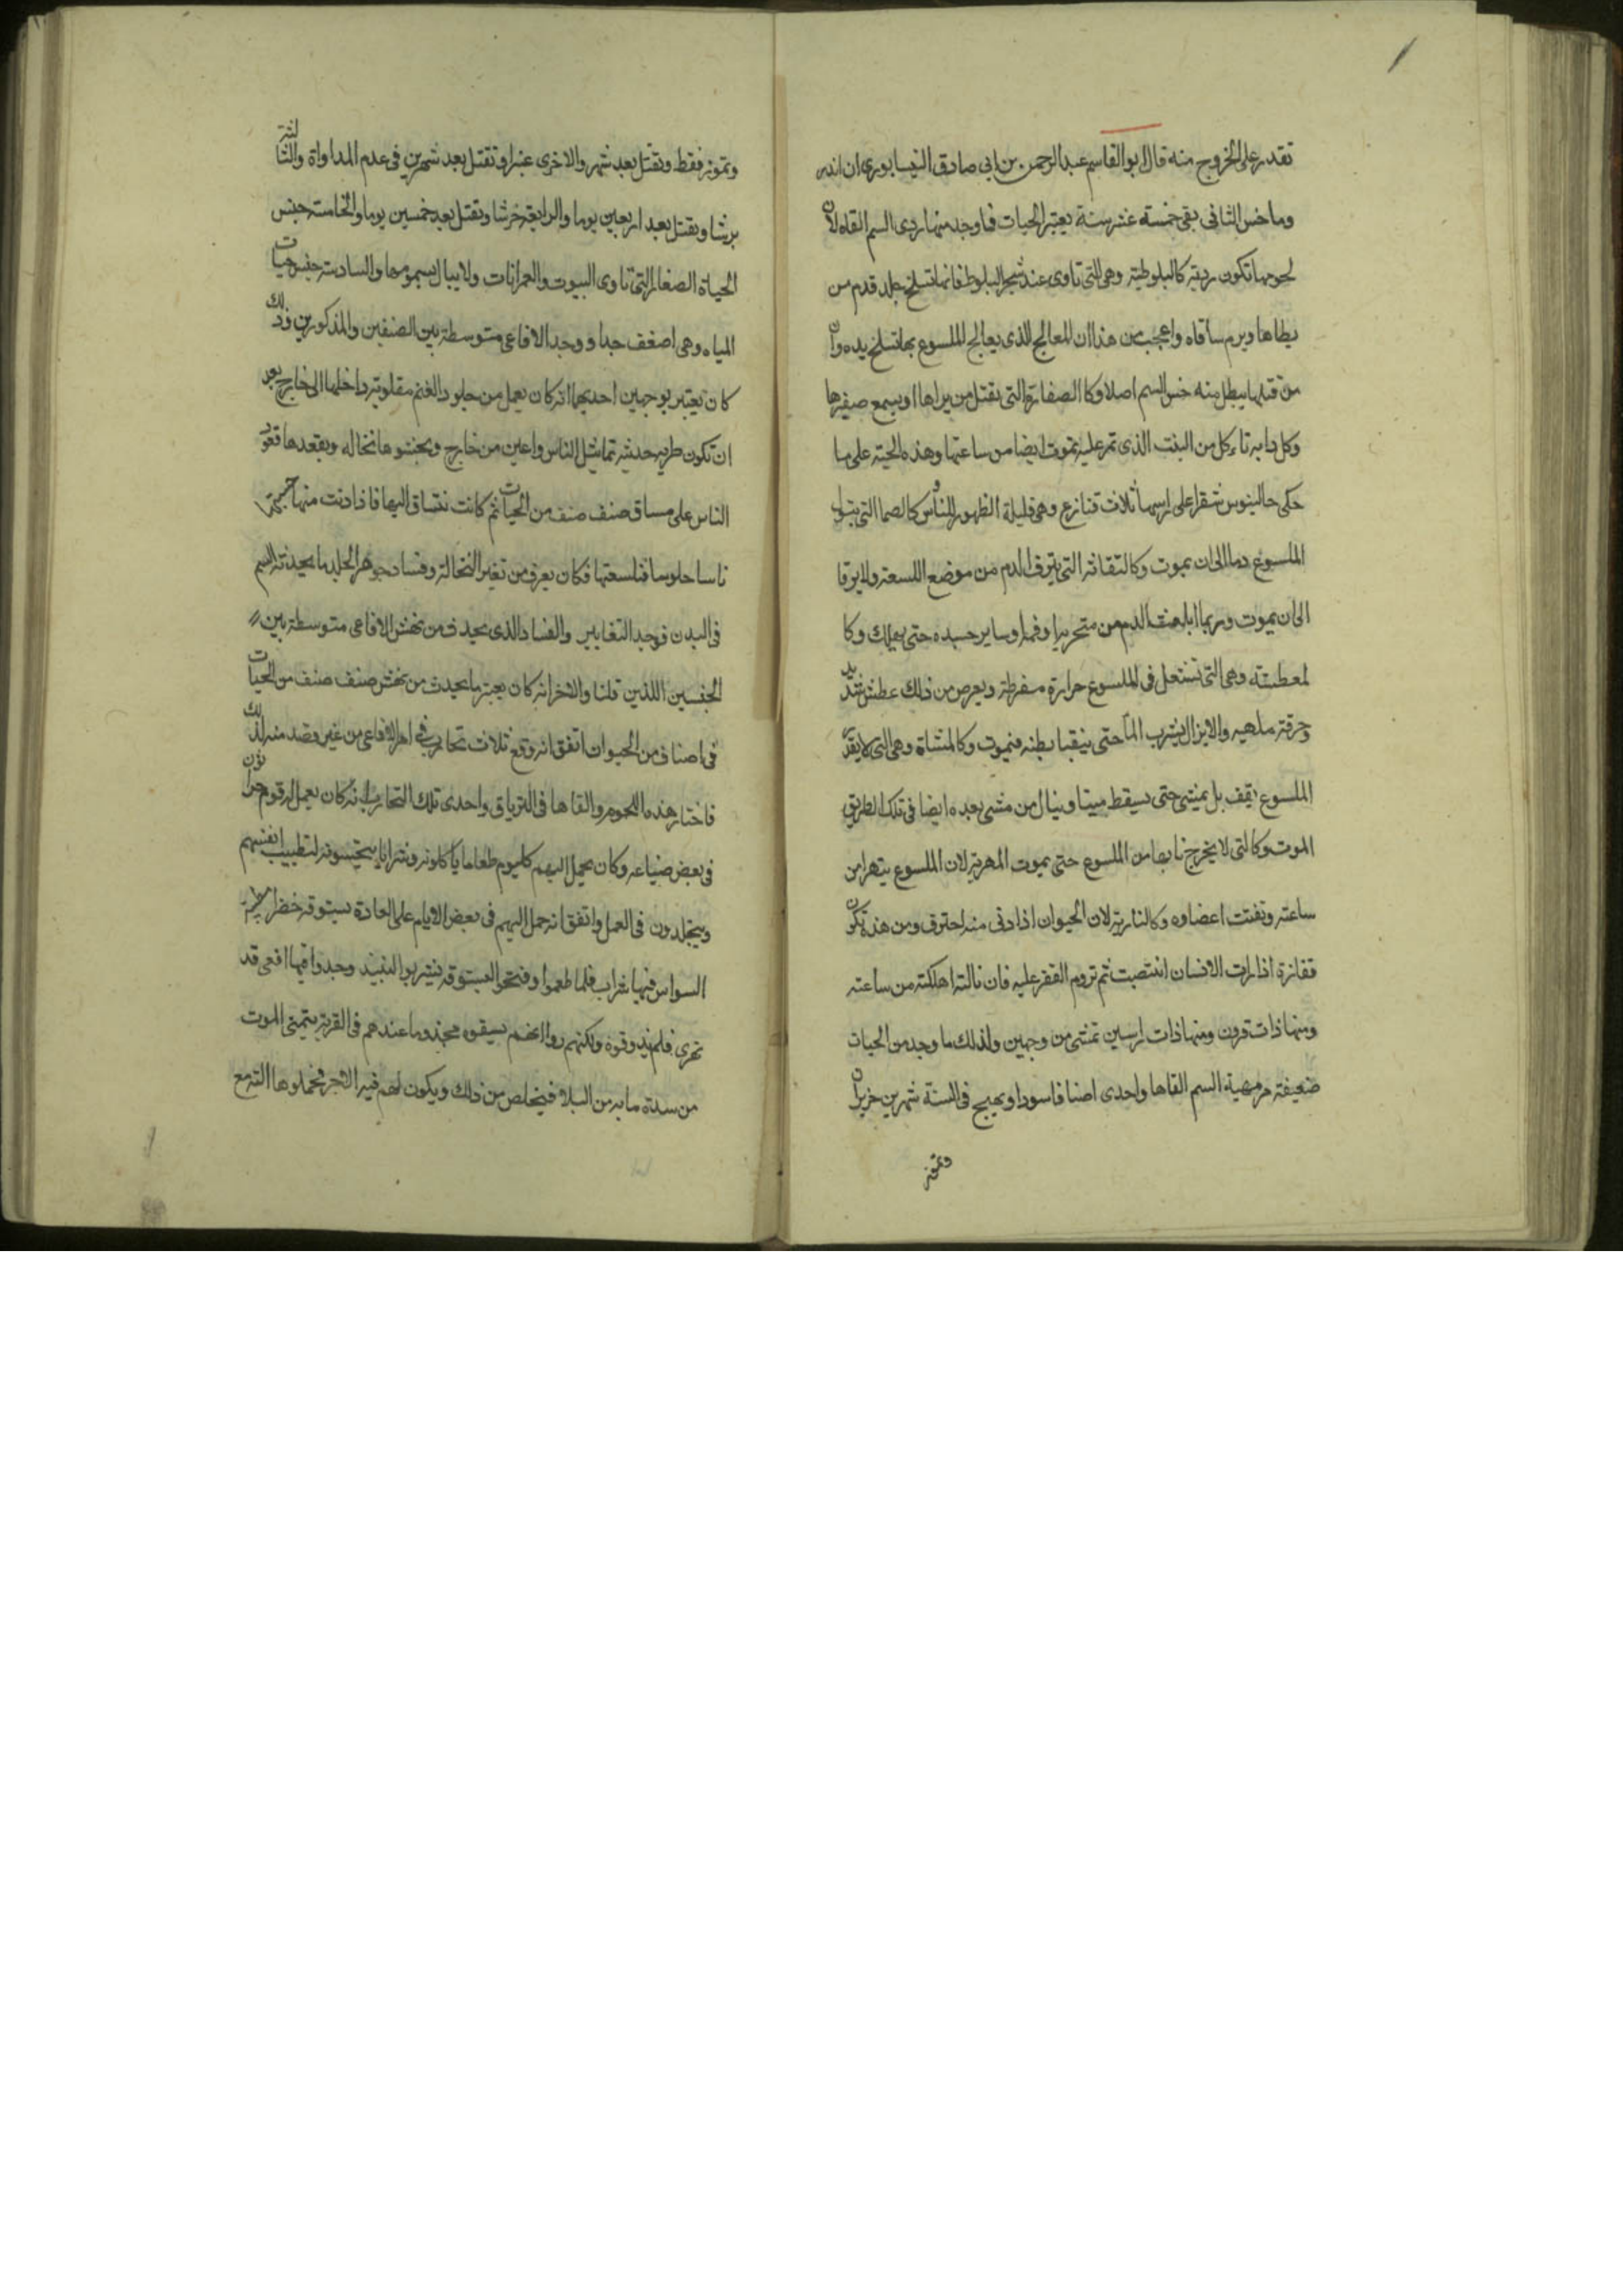 تقدر على الخروج منه قال ابو القاسم عبد الرحمن بن ابى صادق النيسابورى ان اندر
وماخس الثانى بقى خمسته عشر سنة يعتبر الحيات فما وجد منها ردى السم القاه لان
لحومها تكون ردية كالبلوطية وهى التى تاوى عند شجر البلوط فانها تسلخ جلد قدم من
يطاها ويرم ساقاه واعجب من هذا ان المعالج الذى يعالج الملسوع بها تسلخ يده وان
من قتلها يبطل منه حس السم اصلا وكا الصفارة التى تقتل من يراها او يسمع صفيرها
وكل دابه تاءكل من النبت الذى تمر عليه تموت ايضا من ساعتها وهذه الحية على ما
حكى جالينوس شقرا على راسها ثلاث قنازع وهى قليلة الظهور للناس وكالصما التى يبول
الملسوع دما الى ان يموت وكالتقاته التى ينزف الدم من موضع اللسعة ولا يرقا
الى ان يموت وربما انبعث الدم من منخريه او فمه او ساير جسده حتى يهلك وكا
لمعطشته وهى التى تشتعل فى الملسوع حرارة مفرطة ويعرض من ذلك عطش شديد
وحرقة ملهبه والايزال يشرب الماء حتى ينبقبا بطنه فيموت وكالمشاة وهى التى لا يقدر
الملسوع يقف بل يمشى حتى يسقط ميتا وينال من مشى بعده ايضا فى تلك الطريق
الموت وكالتى لا يخرج نابها من الملسوع حتى يموت المهرية لان الملسوع يتهرا من
ساعته وتفتت اعضاوه وكالنارية لان الحيوان اذا دنى منه احترق ومن هذه تكون
قفازة اذا رات الانسان انتصبت ثم تروم القفز عليه فان نالته اهلكته من ساعته
ومنها ذات قرون ومنها ذات راسين تمشى من وجهين ولذلك ما وجد من الحيات
ضعيفة السم القاها واحدى اصنافا سودا وبهيج فى السنة شهرين حزيران
وتموز
وتموز فقط وتقتل بعد شهر والاخرى غبرا وتقتل بعد شهرين فى عدم المداواة والثالثة
برشا وتقتل بعد اربعين يوما والرابعة خرشا وتقتل بعد خمسين يوما والخامسة جنس
الحياة الصغار التى تاوى البيوت والعمرانات ولا يبال بسمومها والسادسة جنس حيات
المياه وهى اضعف جدا ووجد الافاعى متوسطة بين الصنفين والمذكورين وذلك
كان يعتبر بوجهين احديهما انه كان يعمل من جلود الغنم مقلوبة داخلها الى خارج بعد
ان تكون طريه حديثه تماثيل الناس واعين من خارج ويحشوها نخاله ويقعدها قعود
الناس على مساق صنف صنف من الحيات ثم كانت تساق اليها فاذا دنت منها حسبتها
ناسا جلوسا فلسعتها فكان يعرف من تغير النخالة وفساد جوهر الجلد ما يحدثه السم
فى البدن فوجد التغايير والفساد الذى يحدث من نهش الافاعى متوسطة بين
الجنسين اللذين قلنا والاخر انه كان يعتبر ما يحدث من نهش صنف صنف من الحيات
فى اصناف من الحيوان اتفق انه وقع ثلاث تجارب فى امر الافاعى من غير قصد منه لذلك
فاختار هذه اللحوم والقاها فى الترياق واحدى تلك التجارب انه كان يعمل له قوم حراثون
فى بعض ضياعه وكان يحمل اليهم كل يوم طعاما ياكلونه وشرابا يتحيسونه لتطييب انفسهم
ويتجلدون فى العمل واتفق انه حمل اليهم فى بعض الايام على العادة بستوقه خضرا مطينة
الراس فيها شراب فلما طعموا وفتحوا البستوقه ليشربوا النبيذ وجدوا فيها افعى قد
تهرى فلم يذوقوه ولكنهم روا انهم يسقوه مجذوما عندهم فى القرية يتمنى الموت
من شدة ما به من البلا فيخلص من ذلك ويكون لهم فيه الاجر فحملوها اليه مع